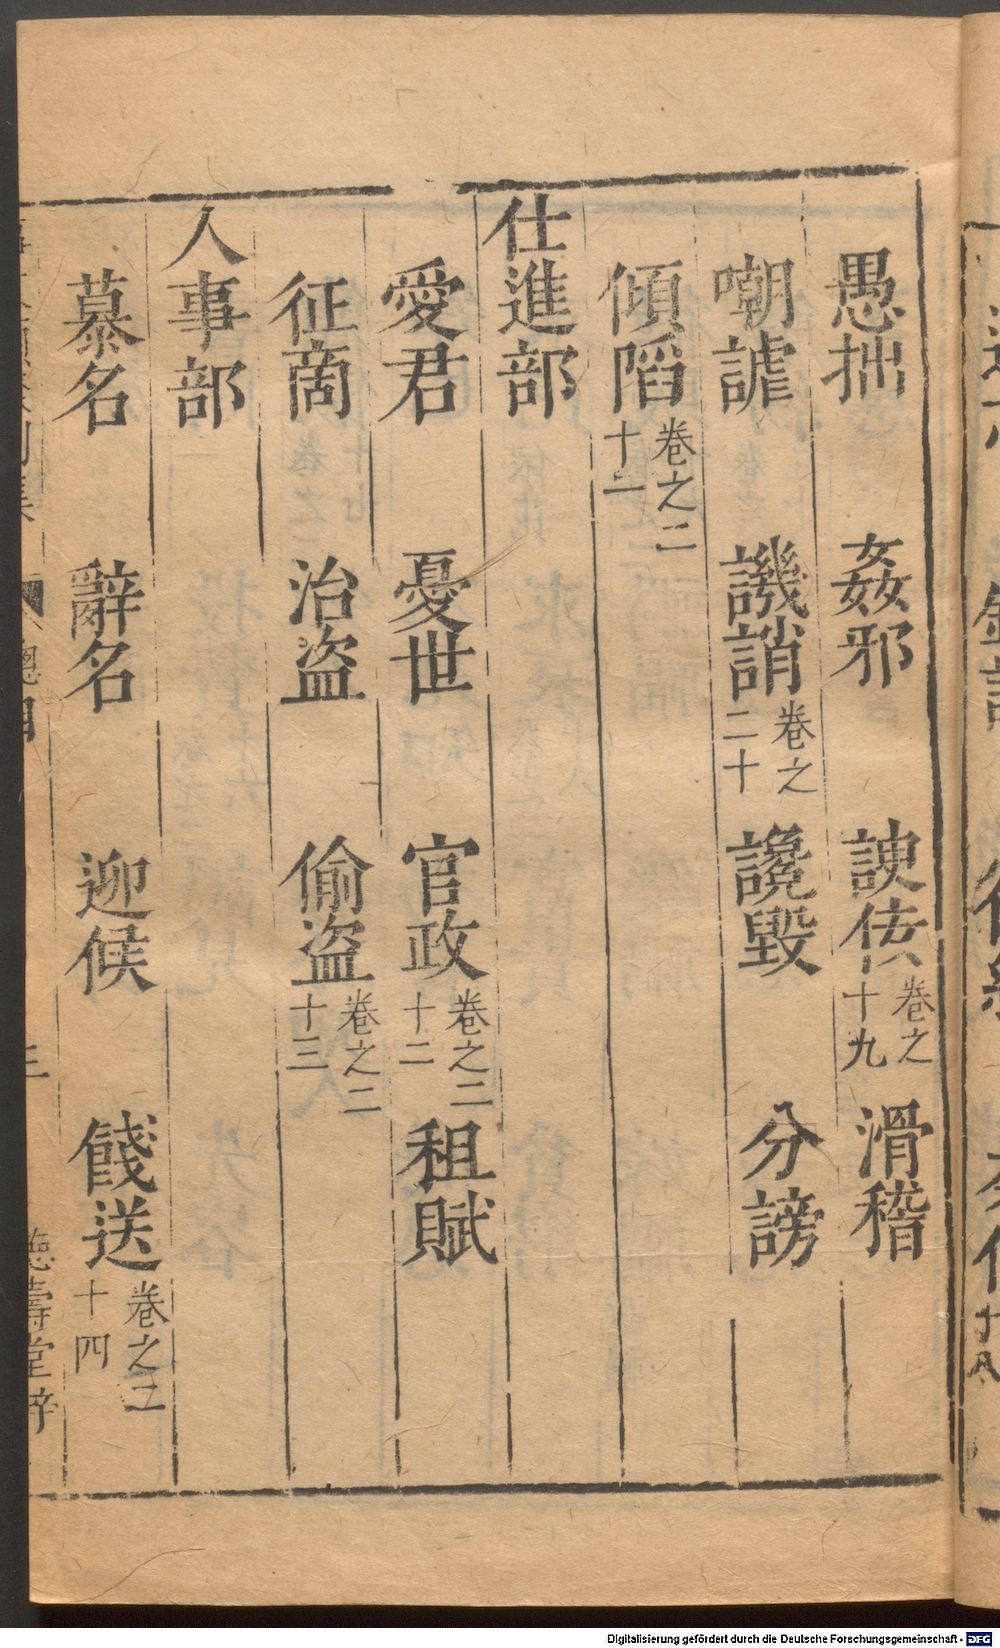 愚拙 姦邪 諛佞卷之十九 滑稽
嘲謔 譏誚卷之二十 讒毀 分謗
傾陷卷之二十一
仕進部
愛君 憂世 官政卷之二十二 租賦
征商 治盜 偷盜卷之二十三
人事部
慕名 辭名 迎候 餞送卷之二十四
三
壽堂梓
Digitalisierung gefördert durch die Deutsche Forschungsgemeinschaft - DFG